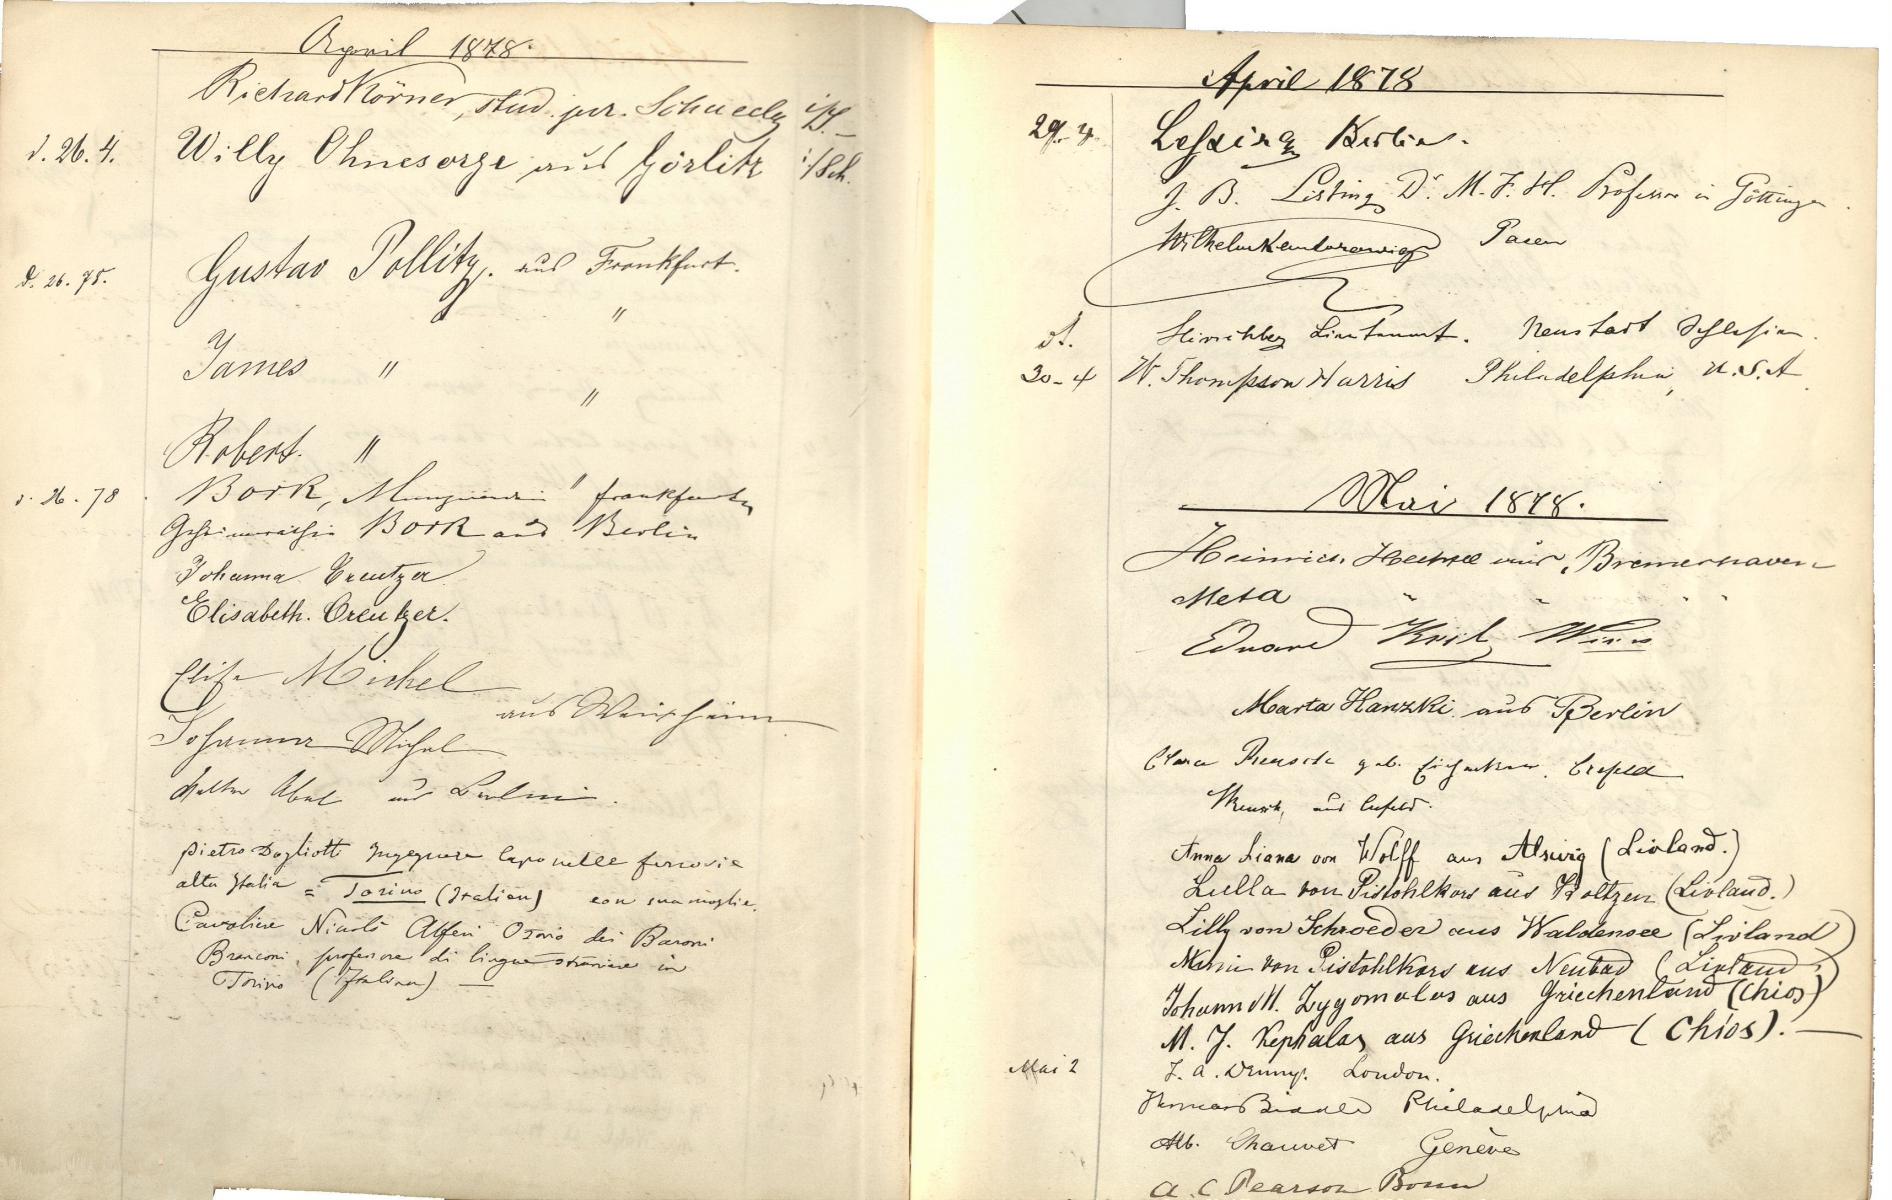 April 1878.
Richard Körner, stud. jur.
d. 26. 4. Willy Ohnesorge aus Görlitz i/Sch.
d. 26. 75. Gustav Pollitz. aus Frankfurt.
"
James "
"
Robert. "
26. 78 Bork, " Frankfurt
Geheimräthin Bork aus Berlin
Johanna Creutzer
Elisabeth. Creutzer.
Elise Michel
aus
Johanna Michel
Walter Abel aus Berlin.
Pietro Dogliotti Ingegnere Capo nelle ferrovie
alta Italia = Torino (Italien) con sua moglie.
Cavaliere Nicolò Alfieri Osorio dei Baroni
Branconi, professore di lingue straniere in
Torino (Italien) —
April 1878
29. 4. Lessing Berlin.
J. B. Listing Dr. M. F. H. Professor in Göttingen.
Wilhelm Kantorowicz Posen
Hirschberg Lieutenant. Neustadt Schlesien.
30-4 W. Thompson Harris Philadelphia, U.S.A.
Mai 1878.
Heinrich aus Bremerhaven
Meta " " " "
Eduard Wien
Marta Hanzki aus Berlin
Clara geb. Crefeld
aus Crefeld.
Anna Liana von Wolff aus Alswig (Livland.)
Lulla von Pistohlkors aus Koltzen (Livland.)
Lilly von Schroeder aus Waldensee (Livland)
von Pistohlkors aus Neubad (Livland)
Johann M. Zygomalas aus Griechenland (Chios)
M. J. Kephalas aus Griechenland (Chios). —
Mai 2 J. A. Denny. London.
Thomas Biddle Philadelphia
Alb. Chauvet Genève
A. C. Pearson Bonn